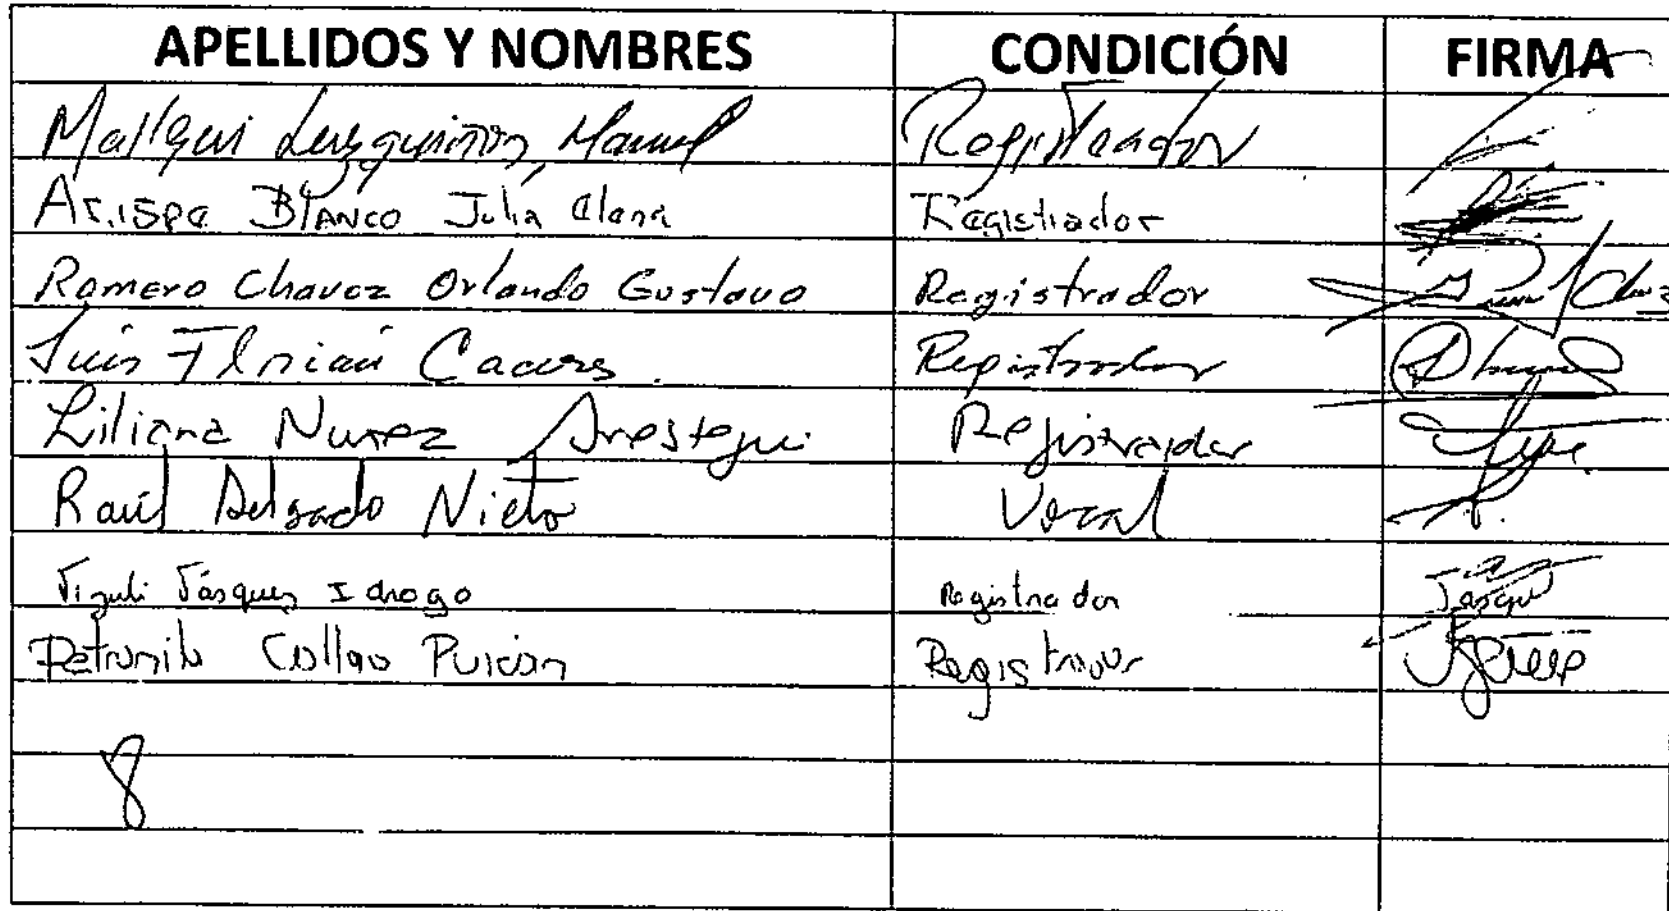 APELLIDOS Y NOMBRES CONDICIÓN FIRMA
Mallqui Luzquiños, Manuel Registrador
Arispe Blanco Julia Elena Registrador
Romero Chavez Orlando Gustavo Registrador
Luis Florian Caceres. Registrador
Liliana Nuñez Arestegui Registrador
Raúl Delgado Nieto Vocal
Vásquez Idrogo Registrador
Petronila Collao Puican Registrador
8